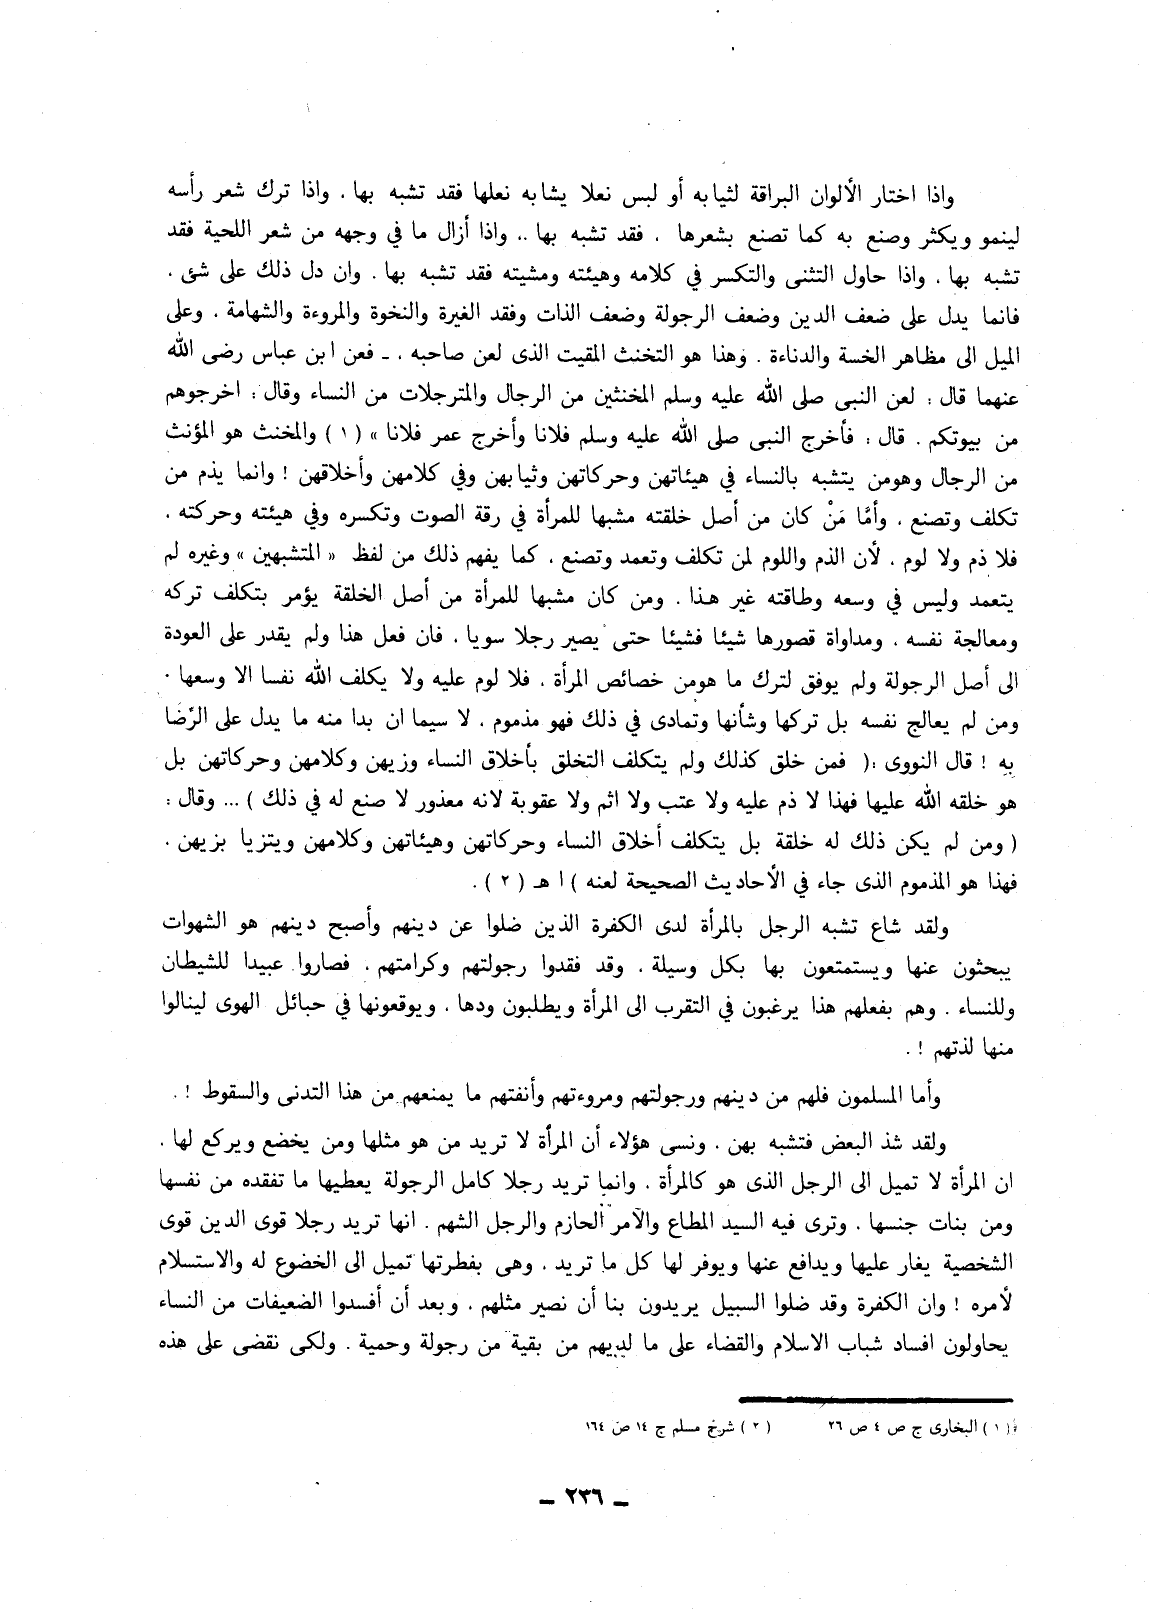 واذا اختار الألوان البراقة لثيابه أو لبس نعلا يشابه نعلها فقد تشبه بها . واذا ترك شعر رأسه
لينمو ويكثر وصنع به كما تصنع بشعرها . فقد تشبه بها .. واذا أزال ما في وجهه من شعر اللحية فقد
تشبه بها . واذا حاول التثنى والتكسر في كلامه وهيئته ومشيته فقد تشبه بها . وان دل ذلك على شئ .
فانما يدل على ضعف الدين وضعف الرجولة وضعف الذات وفقد الغيرة والنخوة والمروءة والشهامة . وعلى
الميل الى مظاهر الخسة والدناءة . وهذا هو التخنث المقيت الذى لعن صاحبه . ـ فعن ابن عباس رضى الله
عنهما قال : لعن النبى صلى الله عليه وسلم المخنثين من الرجال والمترجلات من النساء وقال : اخرجوهم
من بيوتكم . قال : فأخرج النبى صلى الله عليه وسلم فلانا وأخرج عمر فلانا » ( ١ ) والمخنث هو المؤنث
من الرجال وهومن يتشبه بالنساء في هيئاتهن وحركاتهن وثيابهن وفي كلامهن وأخلاقهن ! وانما يذم من
تكلف وتصنع . وأمَّا مَنْ كان من أصل خلقته مشبها للمرأة في رقة الصوت وتكسره وفي هيئته وحركته .
فلا ذم ولا لوم . لأن الذم واللوم لمن تكلف وتعمد وتصنع . كما يفهم ذلك من لفظ « المتشبهين » وغيره لم
يتعمد وليس في وسعه وطاقته غير هذا . ومن كان مشبها للمرأة من أصل الخلقة يؤمر بتكلف تركه
ومعالجة نفسه . ومداواة قصورها شيئا فشيئا حتى يصير رجلا سويا . فان فعل هذا ولم يقدر على العودة
الى أصل الرجولة ولم يوفق لترك ما هومن خصائص المرأة . فلا لوم عليه ولا يكلف الله نفسا الا وسعها .
ومن لم يعالج نفسه بل تركها وشأنها وتمادى في ذلك فهو مذموم . لا سيما ان بدا منه ما يدل على الرِّضَا
بِهِ ! قال النووى :( فمن خلق كذلك ولم يتكلف التخلق بأخلاق النساء وزيهن وكلامهن وحركاتهن بل
هو خلقه الله عليها فهذا لا ذم عليه ولا عتب ولا اثم ولا عقوبة لانه معذور لا صنع له في ذلك ) ... وقال :
( ومن لم يكن ذلك له خلقة بل يتكلف أخلاق النساء وحركاتهن وهيئاتهن وكلامهن ويتزيا بزيهن .
فهذا هو المذموم الذى جاء في الأحاديث الصحيحة لعنه ) ا هـ ( ٢ ) .
ولقد شاع تشبه الرجل بالمرأة لدى الكفرة الذين ضلوا عن دينهم وأصبح دينهم هو الشهوات
يبحثون عنها ويستمتعون بها بكل وسيلة . وقد فقدوا رجولتهم وكرامتهم . فصاروا عبيدا للشيطان
وللنساء . وهم بفعلهم هذا يرغبون في التقرب الى المرأة ويطلبون ودها . ويوقعونها في حبائل الهوى لينالوا
منها لذتهم ! .
وأما المسلمون فلهم من دينهم ورجولتهم ومروءتهم وأنفتهم ما يمنعهم من هذا التدنى والسقوط ! .
ولقد شذ البعض فتشبه بهن . ونسى هؤلاء أن المرأة لا تريد من هو مثلها ومن يخضع ويركع لها .
ان المرأة لا تميل الى الرجل الذى هو كالمرأة . وانما تريد رجلا كامل الرجولة يعطيها ما تفقده من نفسها
ومن بنات جنسها . وترى فيه السيد المطاع والآمر الحازم والرجل الشهم . انها تريد رجلا قوى الدين قوى
الشخصية يغار عليها ويدافع عنها ويوفر لها كل ما تريد . وهى بفطرتها تميل الى الخضوع له والاستسلام
لأمره ! وان الكفرة وقد ضلوا السبيل يريدون بنا أن نصير مثلهم . وبعد أن أفسدوا الضعيفات من النساء
يحاولون افساد شباب الاسلام والقضاء على ما لديهم من بقية من رجولة وحمية . ولكى نقضى على هذه
( ١ ) البخارى ج ص ٤ ص ٢٦ ( ٢ ) شرح مسلم ج ١٤ ص ١٦٤
ـ ٢٣٦ ـ